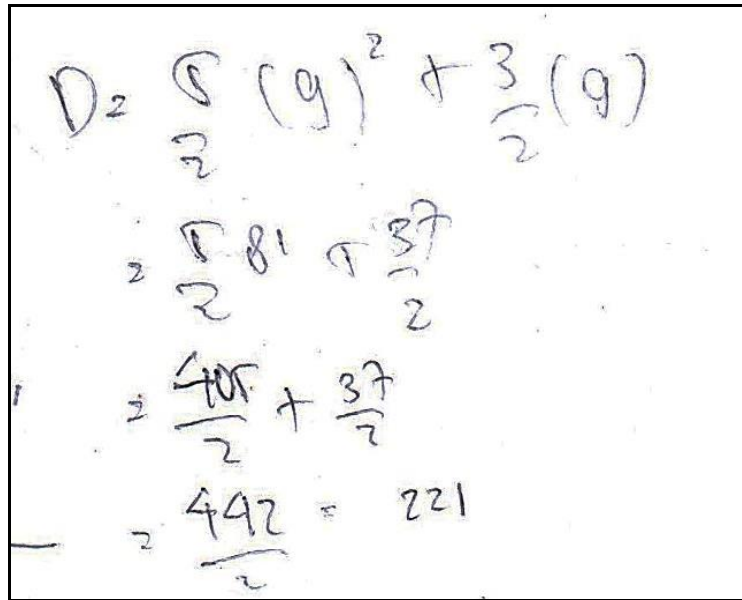 D = 5/2 (9)² + 3/2 (9)
= 5/2 81 + 37/2
= 405/2 + 37/2
= 442/2 = 221